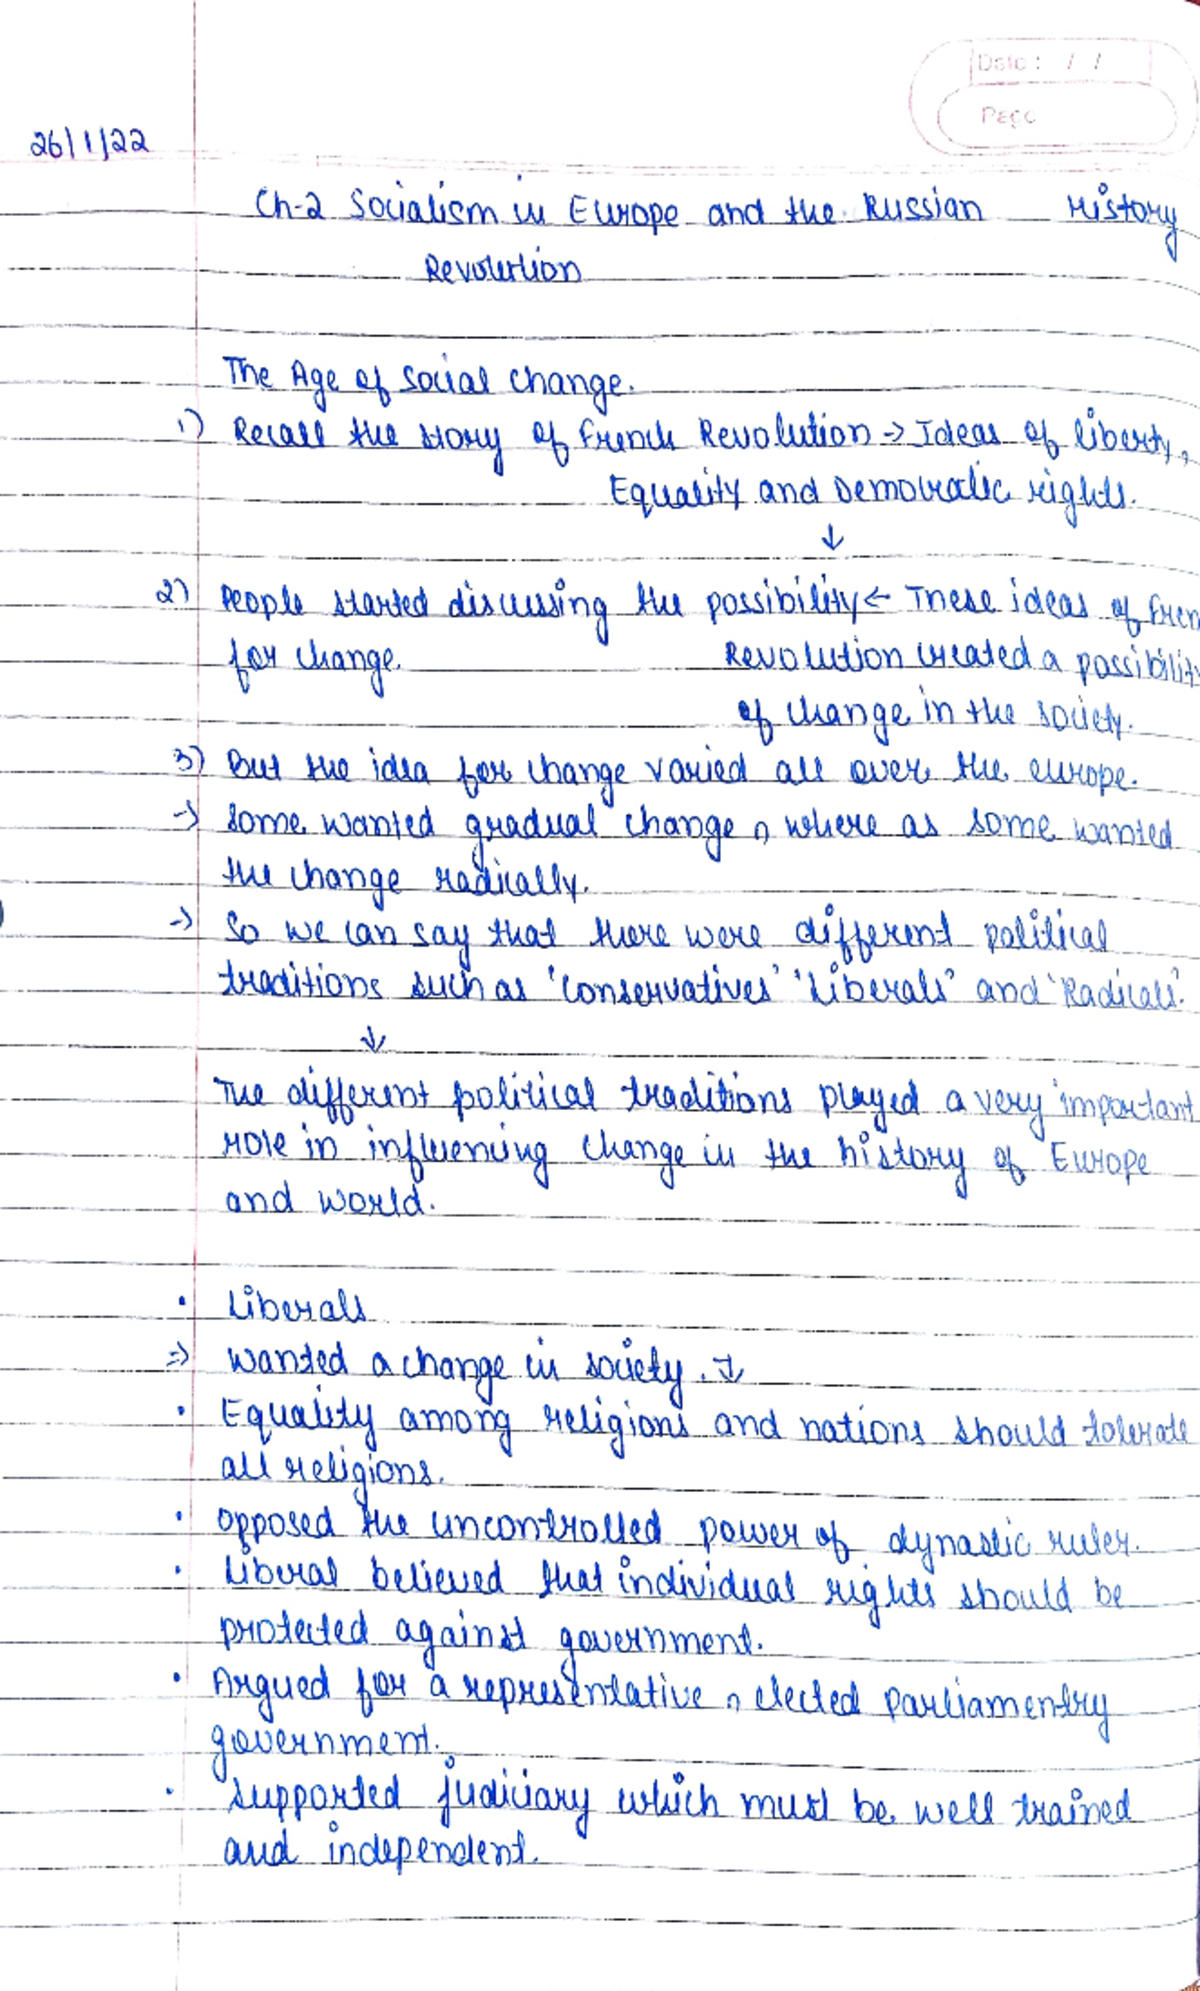 Date : / /
Page
26/1/22
Ch-2 Socialism in Europe and the Russian History
Revolution
The Age of Social Change.
1) Recall the story of French Revolution → Ideas of liberty,
Equality and Democratic rights.
↓
2) People started discussing the possibility ← These ideas of Fren
for change. Revolution created a possibilit
of change in the society.
3) But the idea for change varied all over the europe.
→ Some wanted gradual change, where as some wanted
the change radically.
→ So we can say that there were different political
traditions such as 'Conservatives' 'Liberals' and 'Radicals'.
↓
The different political traditions played a very important
role in influencing change in the history of Europe
and world.
• Liberals
⇒ Wanted a change in society. ↓
• Equality among religions and nations should tolerate
all religions.
• Opposed the uncontrolled power of dynastic ruler.
• Liberal believed that individual rights should be
protected against government.
• Argued for a representative, elected parliamentry
government.
• Supported judiciary which must be well trained
and independent.